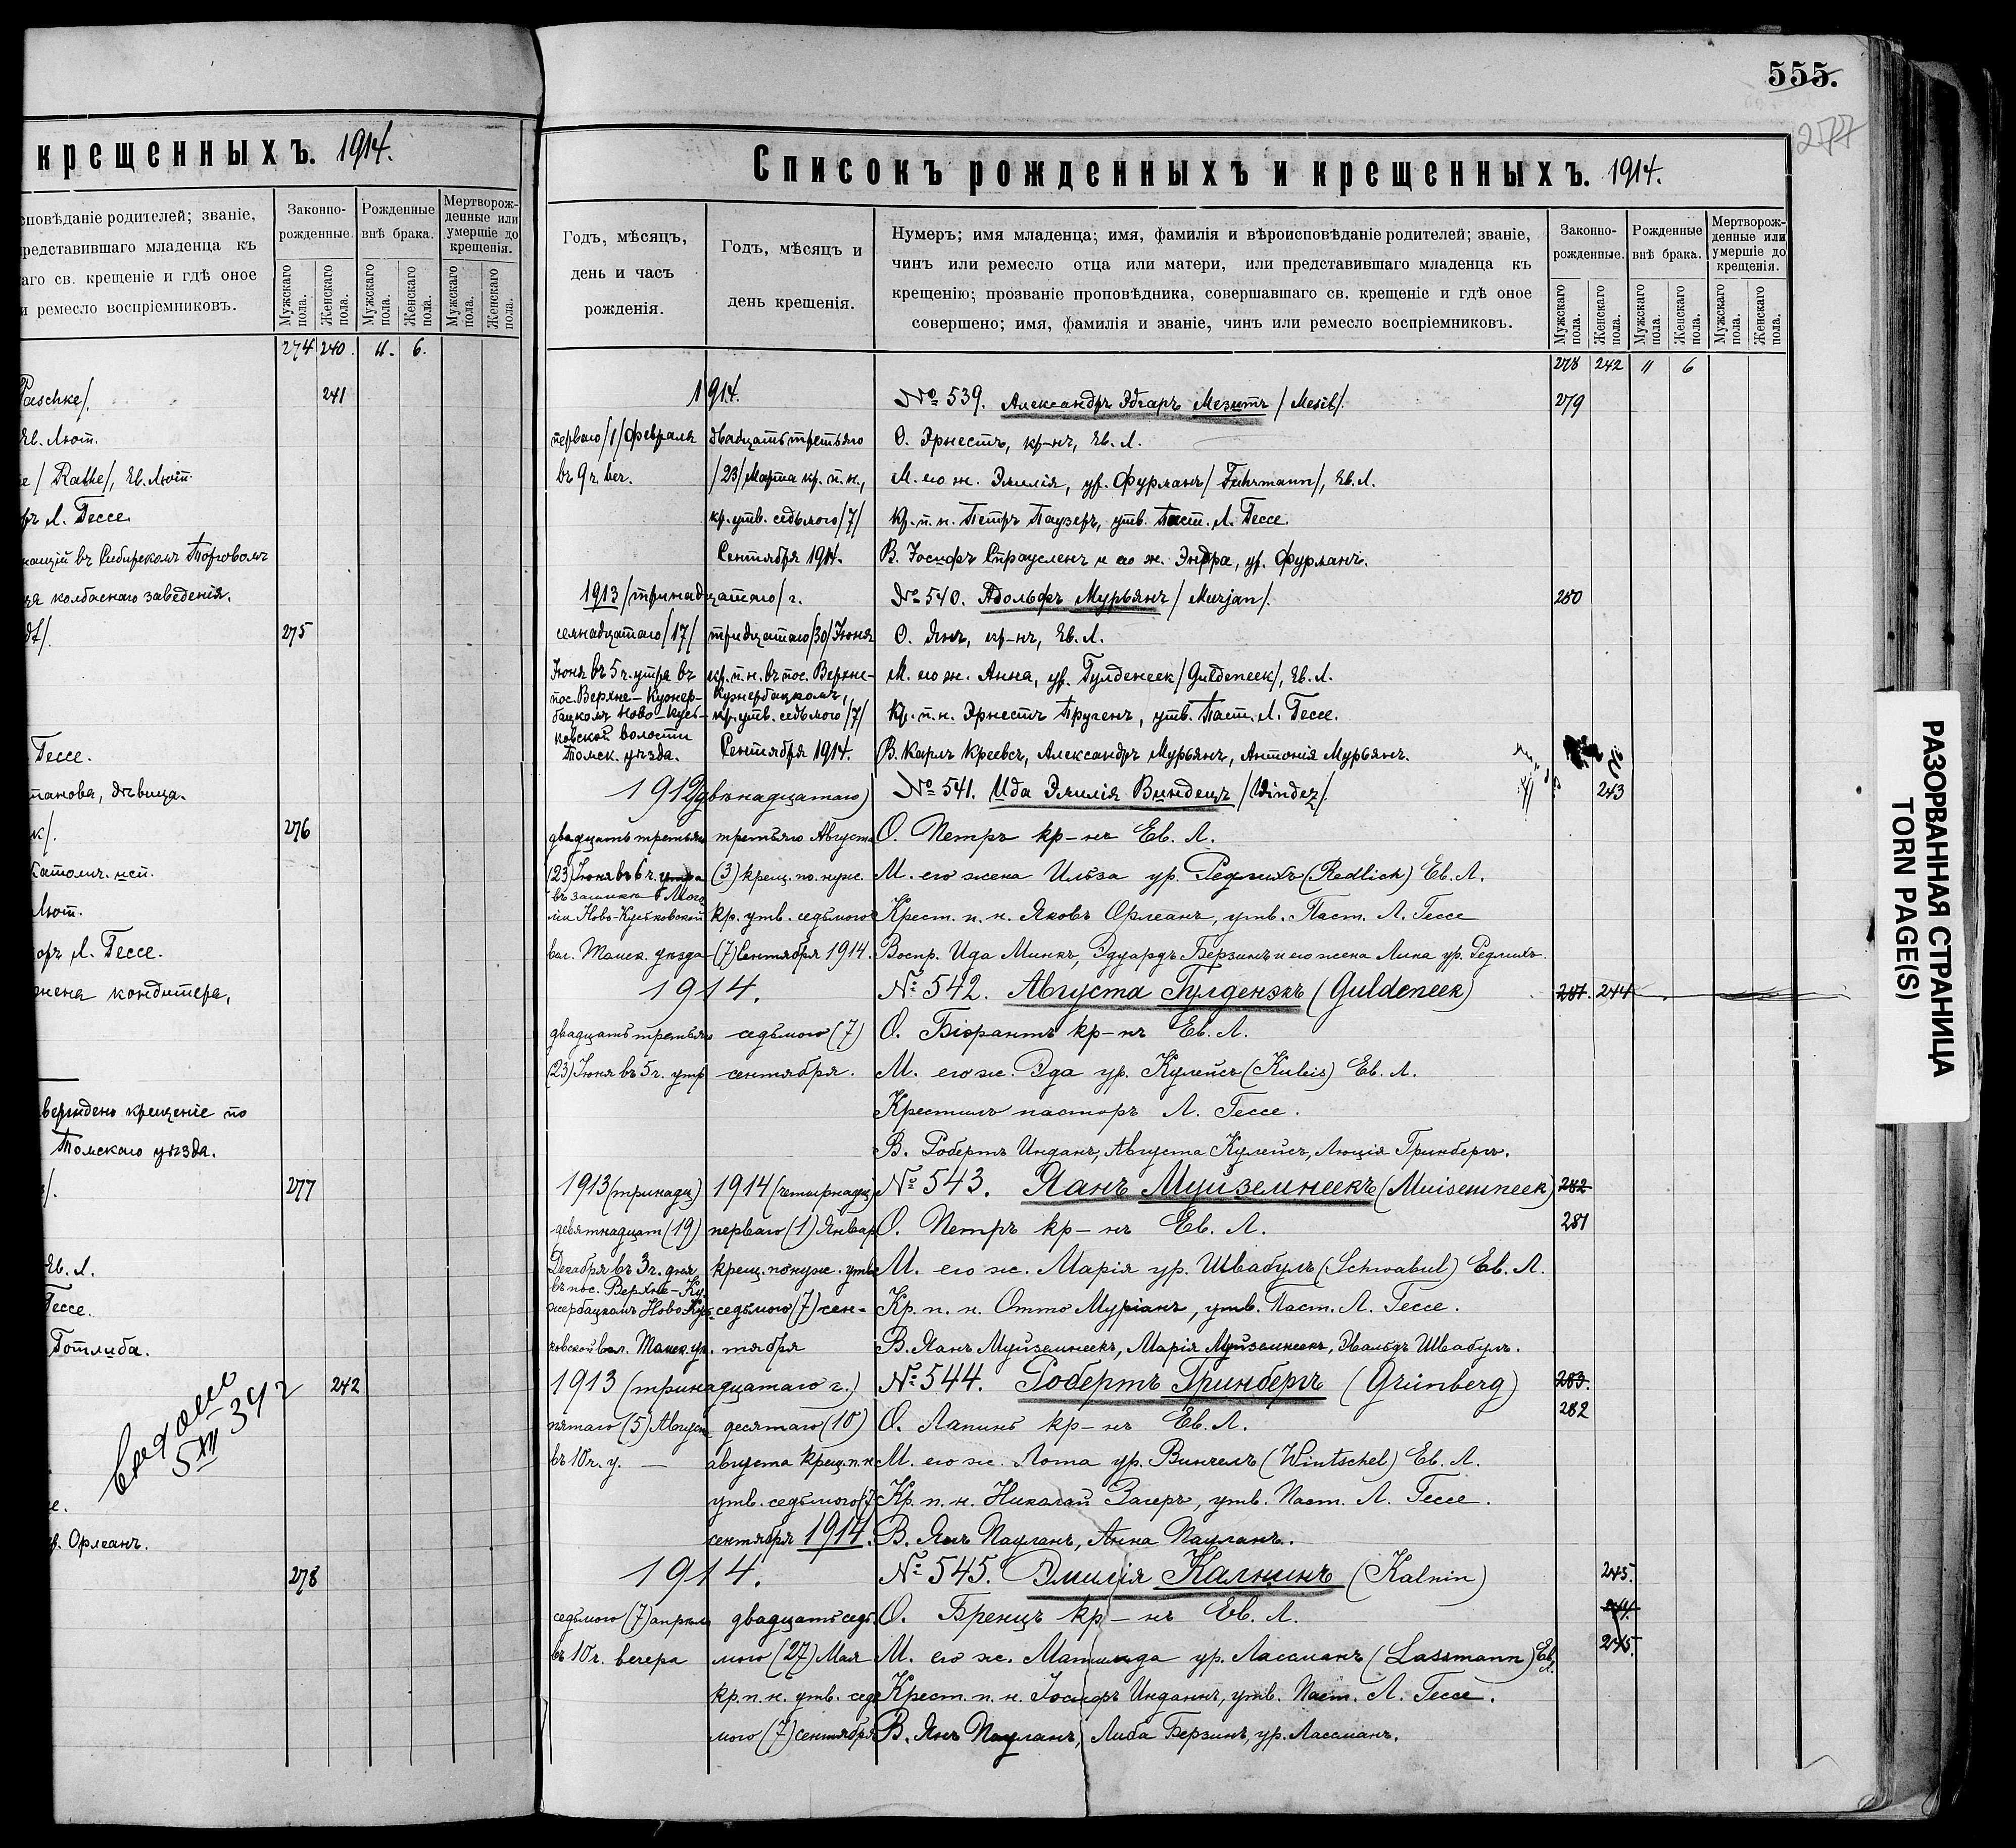 крещенныхъ. 1914.
сповѣданіе родителей; званіе,
редставившаго младенца къ
аго св. крещеніе и гдѣ оное
и ремесло воспріемниковъ.
Законно-рожденные.
Рожденные внѣ брака.
Мертворож-денные или умершіе до крещенія.
Мужскаго пола.
Женскаго пола.
Мужскаго пола.
Женскаго пола.
Мужскаго пола.
Женскаго пола.
274 240. 11. 6.
Paschke/. 241
Ев. Лют.
/Rathe/, Ев. Лют.
Л. Гессе.
въ Сибирскомъ Торговомъ
колбаснаго заведенія.
275
Гессе.
танова, дѣвица.
к/. 276
Католич. исп.
Лют.
оръ Л. Гессе.
жена кондитера,
крещеніе по
Томскаго уѣзда.
277
Ев. Л.
Гессе.
Готлиба.
242
5 XII 39 г
Орлеанъ.
278
555.
277
Списокъ рожденныхъ и крещенныхъ. 1914.
Годъ, мѣсяцъ, день и часъ рожденія.
Годъ, мѣсяцъ и день крещенія.
Нумеръ; имя младенца; имя, фамилія и вѣроисповѣданіе родителей; званіе,
чинъ или ремесло отца или матери, или представившаго младенца къ
крещенію; прозваніе проповѣдника, совершавшаго св. крещеніе и гдѣ оное
совершено; имя, фамилія и званіе, чинъ или ремесло воспріемниковъ.
Законно-рожденные.
Рожденные внѣ брака.
Мертворож-денные или умершіе до крещенія.
Мужскаго пола.
Женскаго пола.
Мужскаго пола.
Женскаго пола.
Мужскаго пола.
Женскаго пола.
278 242 11 6
1914. №539. Александръ Эдгаръ Мезитъ /Mesit/. 279
перваго /1/ февраля двадцать третьяго О. Эрнестъ, кр-нъ, Ев. Л.
въ 9 ч. веч. /23/ Марта кр. п. н., М. его ж. Эмилія, ур. Фурманъ /Fuhrmann/, Ев. Л.
кр. утв. седьмого /7/ Кр. п. н. Петръ Паузеръ, утв. Паст. Л. Гессе.
Сентября 1914. В. Іосифъ Страуслень и его ж. Эндра, ур. Фурманъ.
1913 /тринадцатаго/ г. №540. Адольфъ Мурьянъ /Murjan/. 280
семнадцатаго /17/ тридцатаго /30/ Іюня О. Янъ, кр-нъ, Ев. Л.
Іюня въ 5 ч. утра въ кр. п. н. въ пос. Верхне- М. его ж. Анна, ур. Гулденеек /Guldeneek/, Ев. Л.
пос. Верхне-Кужер- Кужербацкомъ,
бацкомъ Ново-Кусь- кр. утв. седьмого /7/ Кр. п. н. Эрнестъ Пруген, утв. Паст. Л. Гессе.
ковской волости
Томск. уѣзда. Сентября 1914. В. Карлъ Креевсъ, Александръ Мурьянъ, Антонія Мурьянъ.
1912 (двѣнадцатаго) №541. Ида Эмилія Виндецъ /Windez/. 243
двадцать третьяго третьяго Августа О. Петръ кр-нъ Ев. Л.
(23) Іюня въ 6 ч. утра (3) крещ. по. нуж. М. его жена Ильза ур. Редлихъ (Redlich) Ев. Л.
Ново-Кусковской кр. утв. седьмого Крест. п. н. Яковъ Орлеанъ, утв. Паст. Л. Гессе
вол. Томск. уѣзда (7) Сентября 1914. Воспр. Ида Минкъ, Эдуардъ Берзинъ и его жена Лина ур. Редлихъ.
1914. №542. Августа Гулденэкъ (Guldeneek) 281. 244
двадцать третьяго седьмого (7) О. Бідрантъ кр-нъ Ев. Л.
(23) Іюня въ 5 ч. утр сентября. М. его ж. Эда ур. Кулейсъ (Kuleis) Ев. Л.
Крестилъ пасторъ Л. Гессе.
В. Робертъ Инданъ, Августа Кулейсъ, Люція Гринбергъ.
1913 (тринадц) 1914 (четырнадц) №543. Янъ Муйземнеекъ (Muisemneek) 282
девятнадцат (19) перваго (1) Январ О. Петръ кр-нъ Ев. Л. 281
Декабря въ 3 ч. дня крещ. по нуж. утв М. его ж. Марія ур. Швабулъ (Schwabul) Ев. Л.
въ пос. Верхне-Ку-
жербацкомъ Ново Кус- седьмого (7) сен- Кр. п. н. Отто Муріанъ, утв. Паст. Л. Гессе.
ковской вол. Томск. уѣ. тября В. Янъ Муйземнеекъ, Марія Муйземнеекъ, Эвальдъ Швабулъ.
1913 (тринадцатаго г.) №544. Робертъ Гринбергъ (Grünberg) 283.
пятаго (5) Август десятаго (10) О. Лапинъ кр-нъ Ев. Л. 282
въ 10 ч. у. — августа крещ. п. н М. его ж. Лота ур. Винчелъ (Wintschel) Ев. Л.
утв. седьмого (7 Кр. п. н. Николай Загеръ, утв. Паст. Л. Гессе.
сентября 1914. В. Янъ Пауланъ, Анна Пауланъ.
1914. №545. Эмилія Калнинъ (Kalnin) 245.
седьмого (7) апрѣля двадцать седь О. Бренцъ кр-нъ Ев. Л. 244
въ 10 ч. вечера мого (27) Мая М. его ж. Матильда ур. Лассманъ (Lassmann) Ев. Л. 245.
кр. п. н. утв. седь Крест. п. н. Іосифъ Инданъ, утв. Паст. Л. Гессе.
мого (7) сентября В. Янъ Пауланъ, Либа Берзинъ, ур. Лассманъ.
РАЗОРВАННАЯ СТРАНИЦА
TORN PAGE(S)